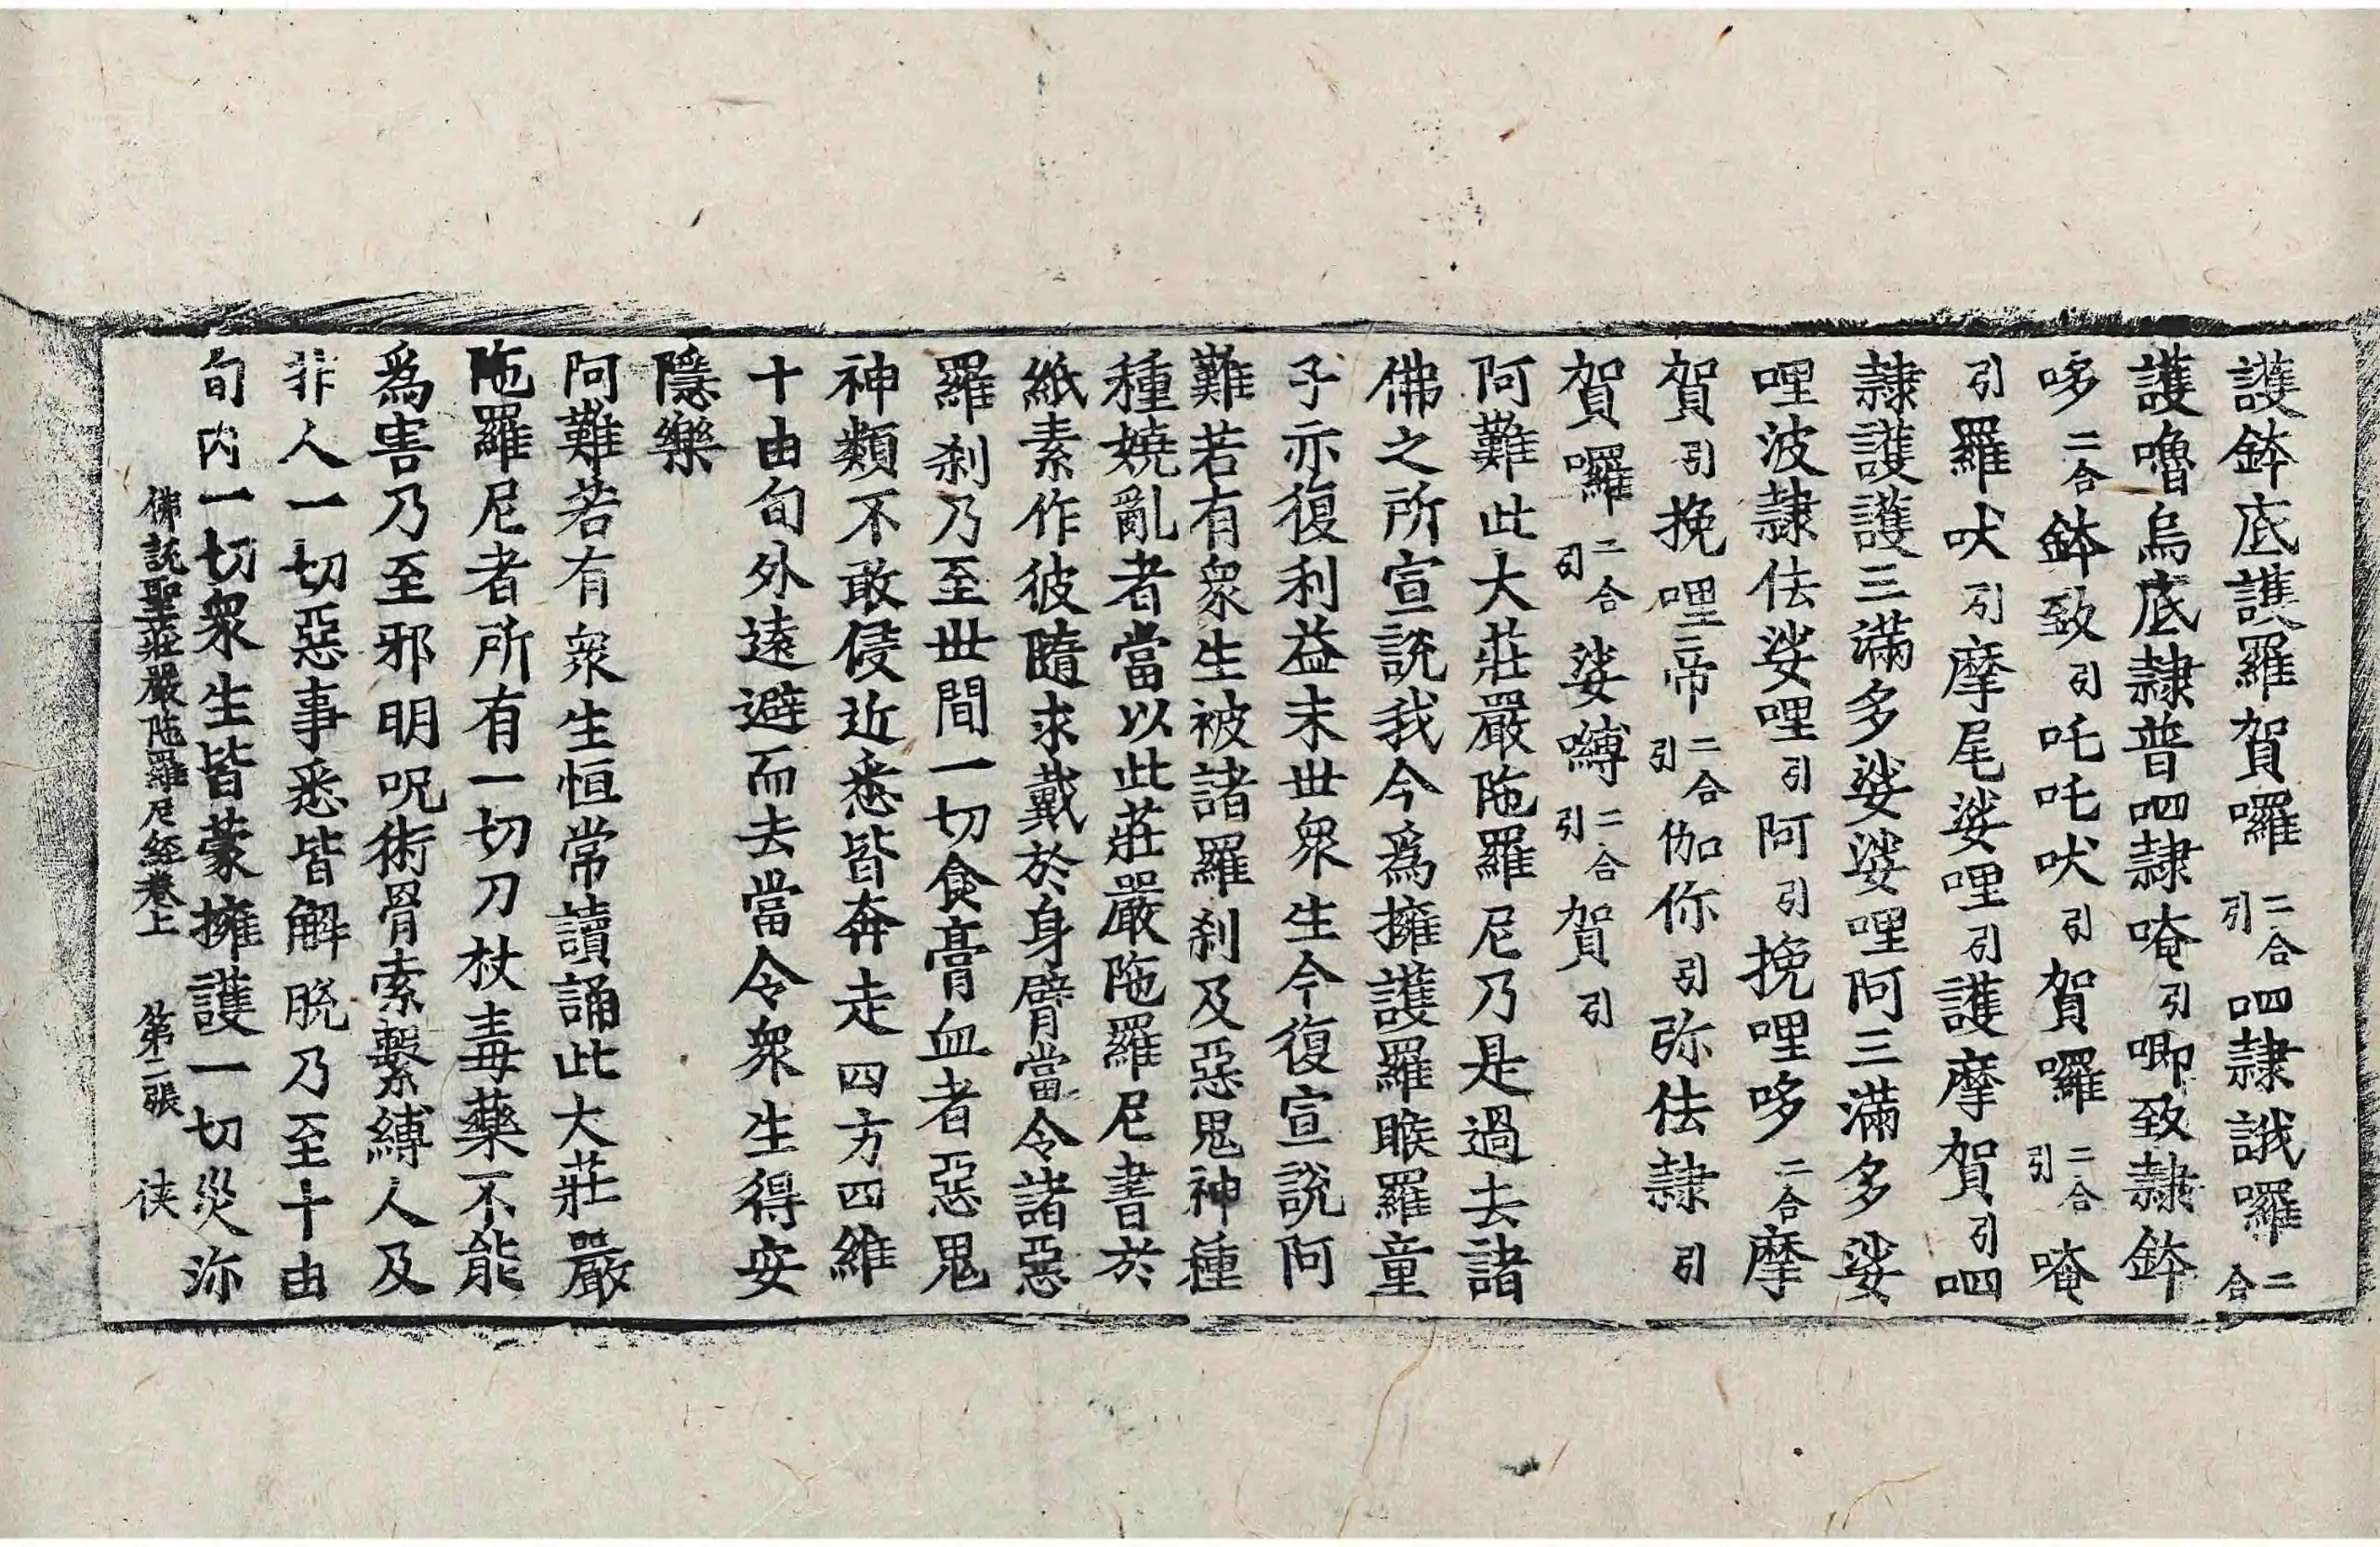 護鉢底護羅賀囉二合引呬隷誐囉二合
護嚕烏底隷普呬隷唵引唧致隷鉢
哆二合鉢致引吒吒吠引賀囉二合引唵
引羅吠引摩尾娑哩引護摩賀引呬
隷護護三滿多娑娑哩阿三滿多娑
哩波隷佉娑哩引阿引挽哩哆二合摩
賀引挽哩帝二合引伽你引弥佉隷引
賀囉二合引娑嚩二合引賀引
阿難此大莊嚴陁羅尼乃是過去諸
佛之所宣說我今爲擁護羅睺羅童
子亦復利益末世衆生今復宣說阿
難若有衆生被諸羅刹及惡鬼神種
種嬈亂者當以此莊嚴陁羅尼書於
紙素作彼隨求戴於身臂當令諸惡
羅刹乃至世間一切食膏血者惡鬼
神類不敢侵近悉皆奔走四方四維
十由旬外遠避而去當令衆生得安
隱樂
阿難若有衆生恒常讀誦此大莊嚴
陁羅尼者所有一切刀杖毒藥不能
爲害乃至邪明呪術罥索繫縛人及
非人一切惡事悉皆解脫乃至十由
旬内一切衆生皆蒙擁護一切災沴
佛說聖莊嚴陁羅尼經卷上　第二張　俠